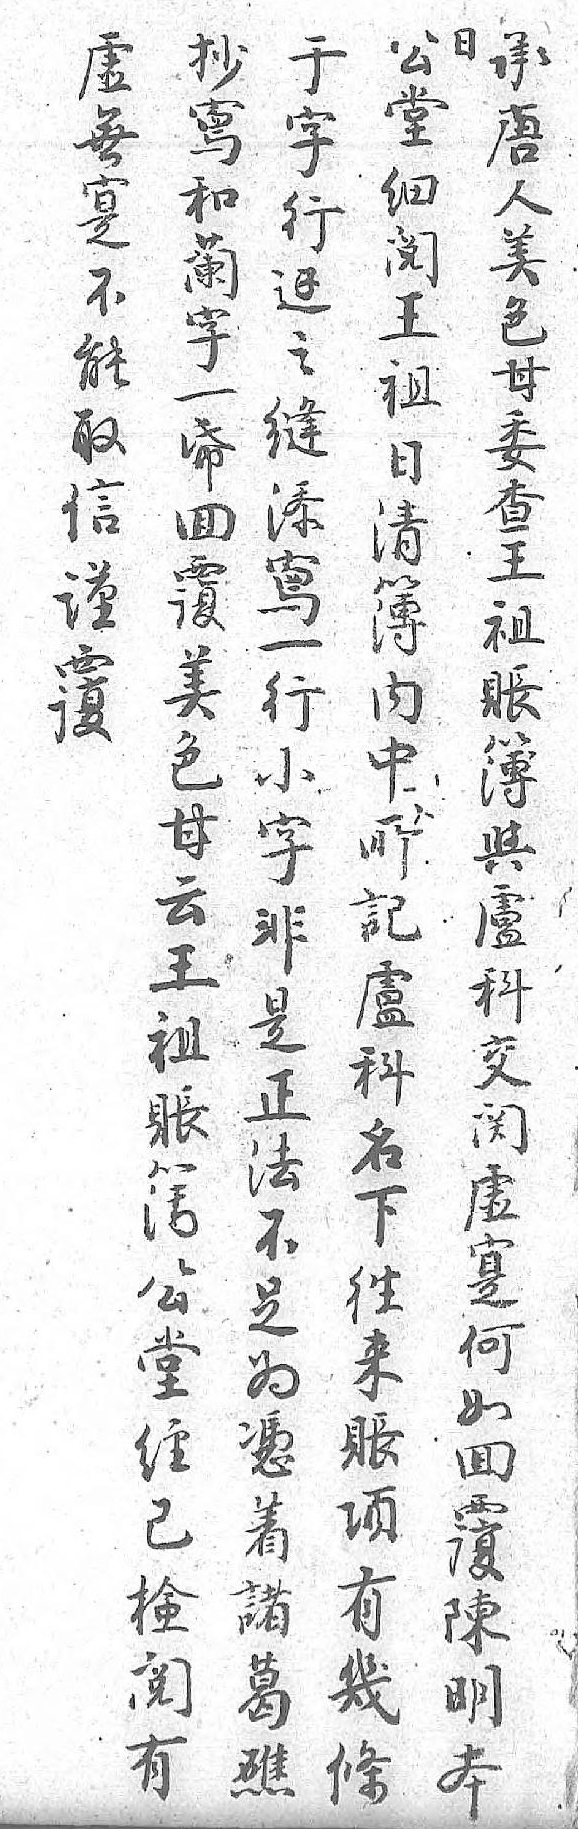 承唐人美色甘委查王祖賬簿與盧科交関虛寔何如回覆陳明本
日公堂細閱王祖日清簿内中所記盧科名下徃来賬項有幾條
于字行逕之縫添寫一行小字非是正法不足為憑着諸葛礁
抄寫和蘭字一帋回覆美色甘云王祖賬簿公堂經已檢閱有
虛無寔不能取信謹覆